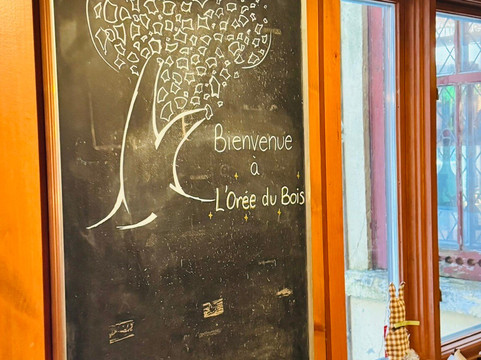 Bienvenue
à
L'Orée du Bois